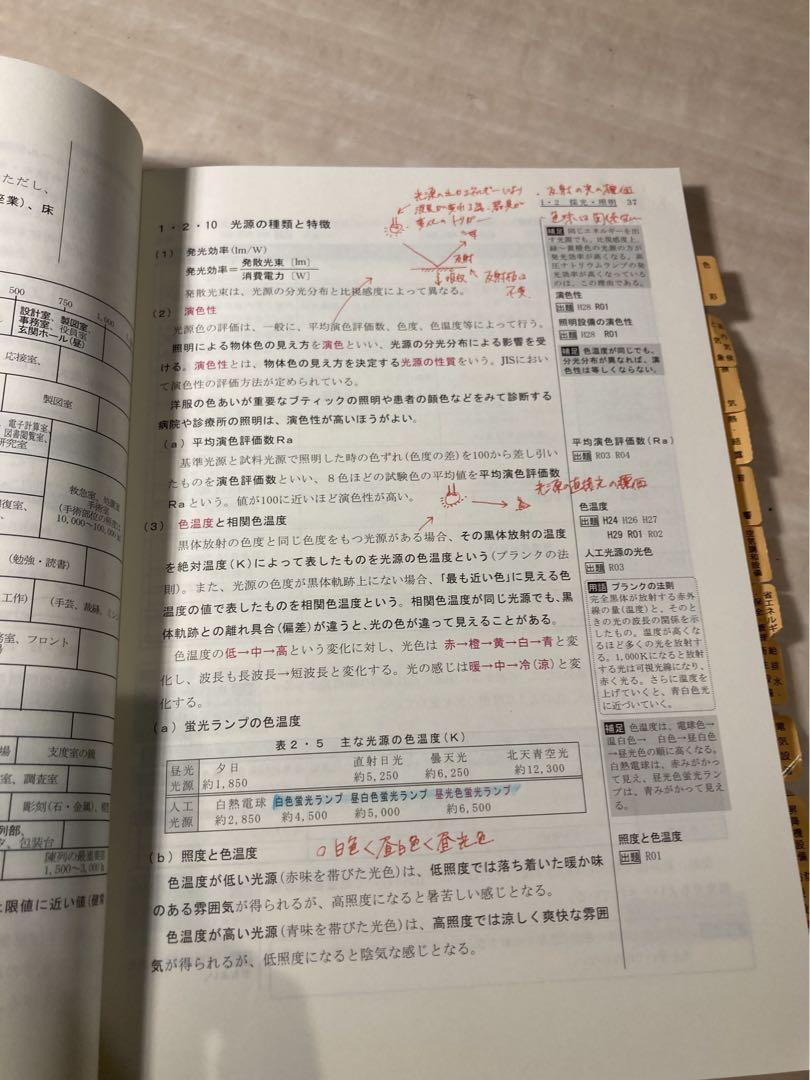 ただし、
座業)、床
500 750 1,000
設計室、製図室、
事務室、役員室
玄関ホール(昼)
応接室、
製図室
電子計算室、
図書閲覧室、
研究室
救急室、処置室
手術室
(手術部位の照度は
10,000〜100,000
(勉強・読書)
工作) (手芸、裁縫、ミシン
室、フロント
場 支度室の鏡
室、調査室
彫刻(石・金属)、
列部、
タ、包装台
陳列の最重要部
1,500〜3,000
限値に近い値
1・2 採光・照明 37
反射の光の評価
色味は関係ない
1・2・10 光源の種類と特徴
(1) 発光効率(lm/W)
発光効率=発散光束〔lm〕/消費電力〔W〕
反射
吸収
発散光束は、光源の分光分布と比視感度によって異なる。
(2) 演色性
光源色の評価は、一般に、平均演色評価数、色度、色温度等によって行う。
照明による物体色の見え方を演色といい、光源の分光分布による影響を受
ける。演色性とは、物体色の見え方を決定する光源の性質をいう。JISにおい
て演色性の評価方法が定められている。
洋服の色あいが重要なブティックの照明や患者の顔色などをみて診断する
病院や診療所の照明は、演色性が高いほうがよい。
(a) 平均演色評価数Ra
基準光源と試料光源で照明した時の色ずれ(色度の差)を100から差し引い
たものを演色評価数といい、8色ほどの試験色の平均値を平均演色評価数
Raという。値が100に近いほど演色性が高い。
光源の直接光の評価
(3) 色温度と相関色温度
黒体放射の色度と同じ色度をもつ光源がある場合、その黒体放射の温度
を絶対温度(K)によって表したものを光源の色温度という(プランクの法
則)。また、光源の色度が黒体軌跡上にない場合、「最も近い色」に見える色
温度の値で表したものを相関色温度という。相関色温度が同じ光源でも、黒
体軌跡との離れ具合(偏差)が違うと、光の色が違って見えることがある。
色温度の低→中→高という変化に対し、光色は 赤→橙→黄→白→青と変
化し、波長も長波長→短波長と変化する。光の感じは暖→中→冷(涼)と変
化する。
(a) 蛍光ランプの色温度
表2・5 主な光源の色温度(K)
昼光光源 夕日 直射日光 曇天光 北天青空光
約1,850 約5,250 約6,250 約12,300
人工光源 白熱電球 白色蛍光ランプ 昼白色蛍光ランプ 昼光色蛍光ランプ
約2,850 約4,500 約5,000 約6,500
白色く昼白色く昼光色
(b) 照度と色温度
色温度が低い光源(赤味を帯びた光色)は、低照度では落ち着いた暖か味
のある雰囲気が得られるが、高照度になると暑苦しい感じとなる。
色温度が高い光源(青味を帯びた光色)は、高照度では涼しく爽快な雰囲
気が得られるが、低照度になると陰気な感じとなる。
補足 同じエネルギーを出
す光源でも、比視感度上、
緑〜黄橙色の光源の方が
発光効率が高くなる。高
圧ナトリウムランプの発
光効率が高くなっている
のは、この理由である。
演色性
出題 H28 R01
照明設備の演色性
出題 H28 R01
補足 色温度が同じでも、
分光分布が異なれば、演
色性は等しくならない。
平均演色評価数(Ra)
出題 R03 R04
色温度
出題 H24 H26 H27
H29 R01 R02
人工光源の光色
出題 R03
用語 プランクの法則
完全黒体が放射する赤外
線の量(温度)と、そのと
きの光の波長の関係を示
したもの。温度が高くな
るほど多くの光を放射す
る。1,000Kになると放射
する光は可視光線になり、
赤く光る。さらに温度を
上げていくと、青白色光
に近づいていく。
補足 色温度は、電球色→
温白色→ 白色→昼白色
→昼光色の順に高くなる。
白熱電球は、赤みがかっ
て見え、昼光色蛍光ラン
プは、青みがかって見え
る。
照度と色温度
出題 R01
色
気
熱・結露
音響
空気調和設備
省エネルギー
電気設